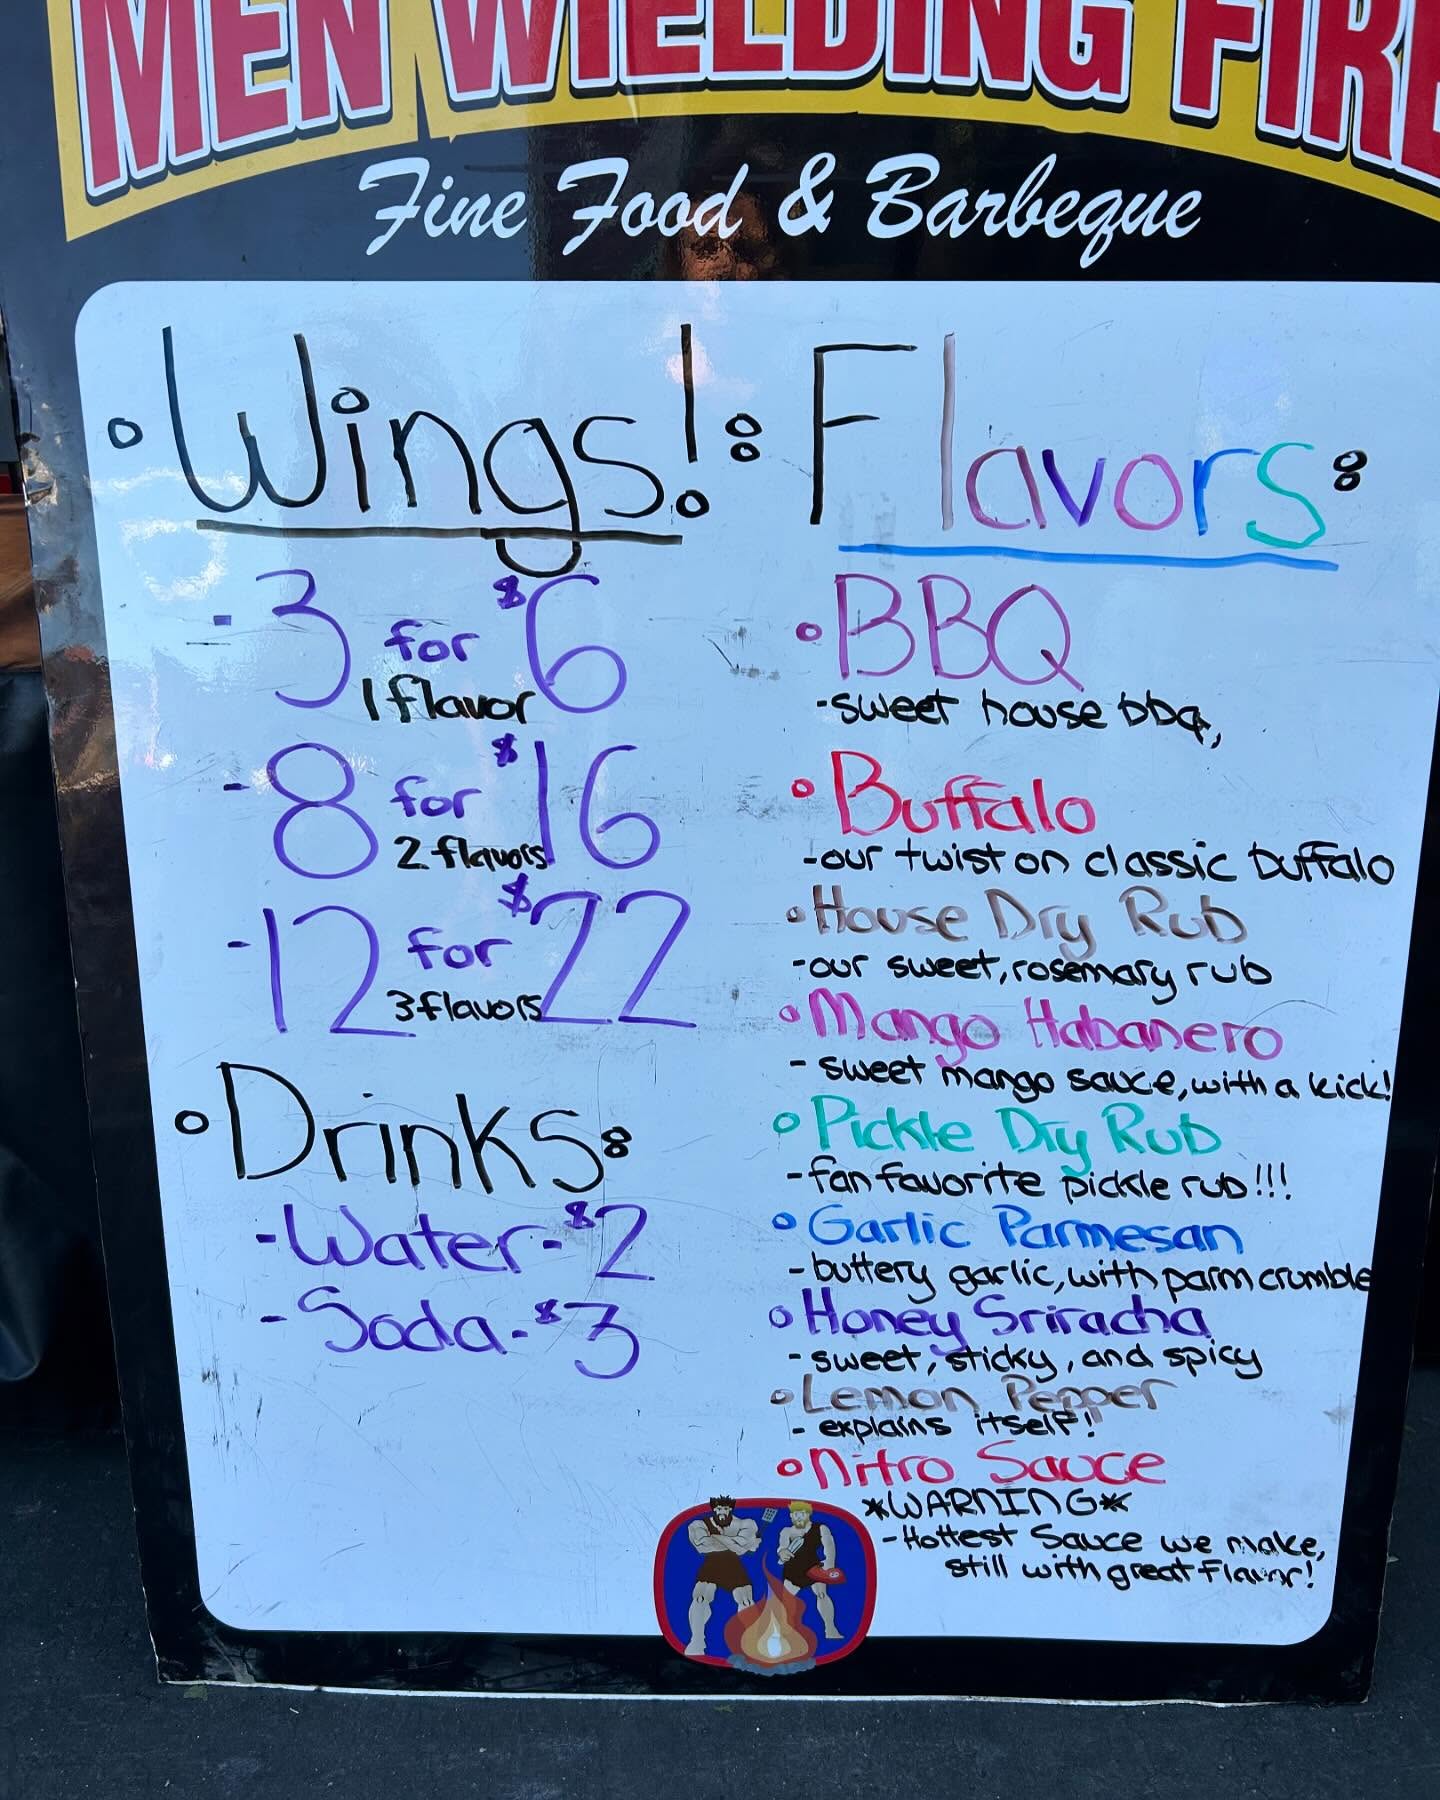 MEN WIELDING FIRE
Fine Food & Barbeque
Wings!:
- 3 for $6
1 flavor
- 8 for $16
2 flavors
- 12 for $22
3 flavors
Drinks:
- Water - $2
- Soda - $3
Flavors:
BBQ
- sweet house bbq,
Buffalo
- our twist on classic buffalo
House Dry Rub
- our sweet, rosemary rub
Mango Habanero
- sweet mango sauce, with a kick!
Pickle Dry Rub
- fan favorite pickle rub!!!
Garlic Parmesan
- buttery garlic, with parm crumble
Honey Sriracha
- sweet, sticky, and spicy
Lemon Pepper
- explains itself!
Nitro Sauce
*WARNING*
- Hottest Sauce we make,
still with great flavor!